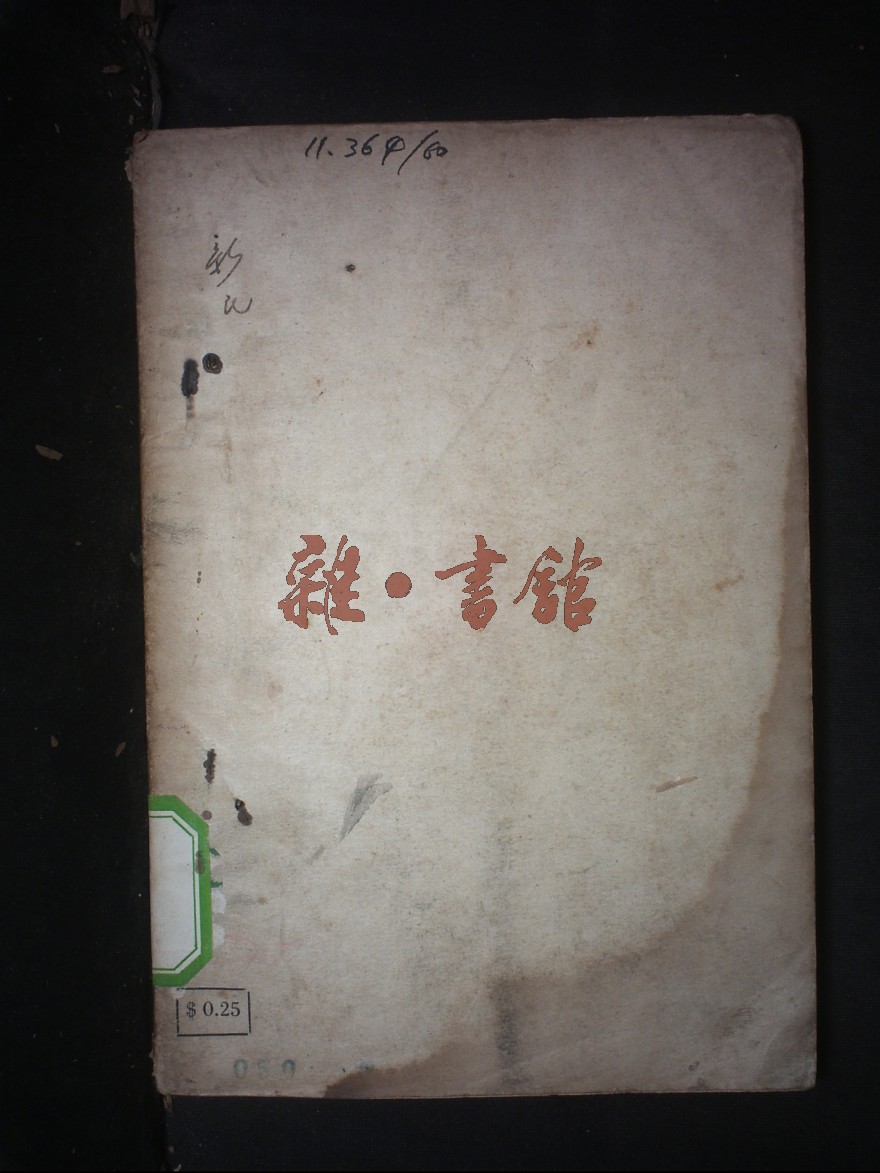 11.364/60
新
雜·書館
$ 0.25
050